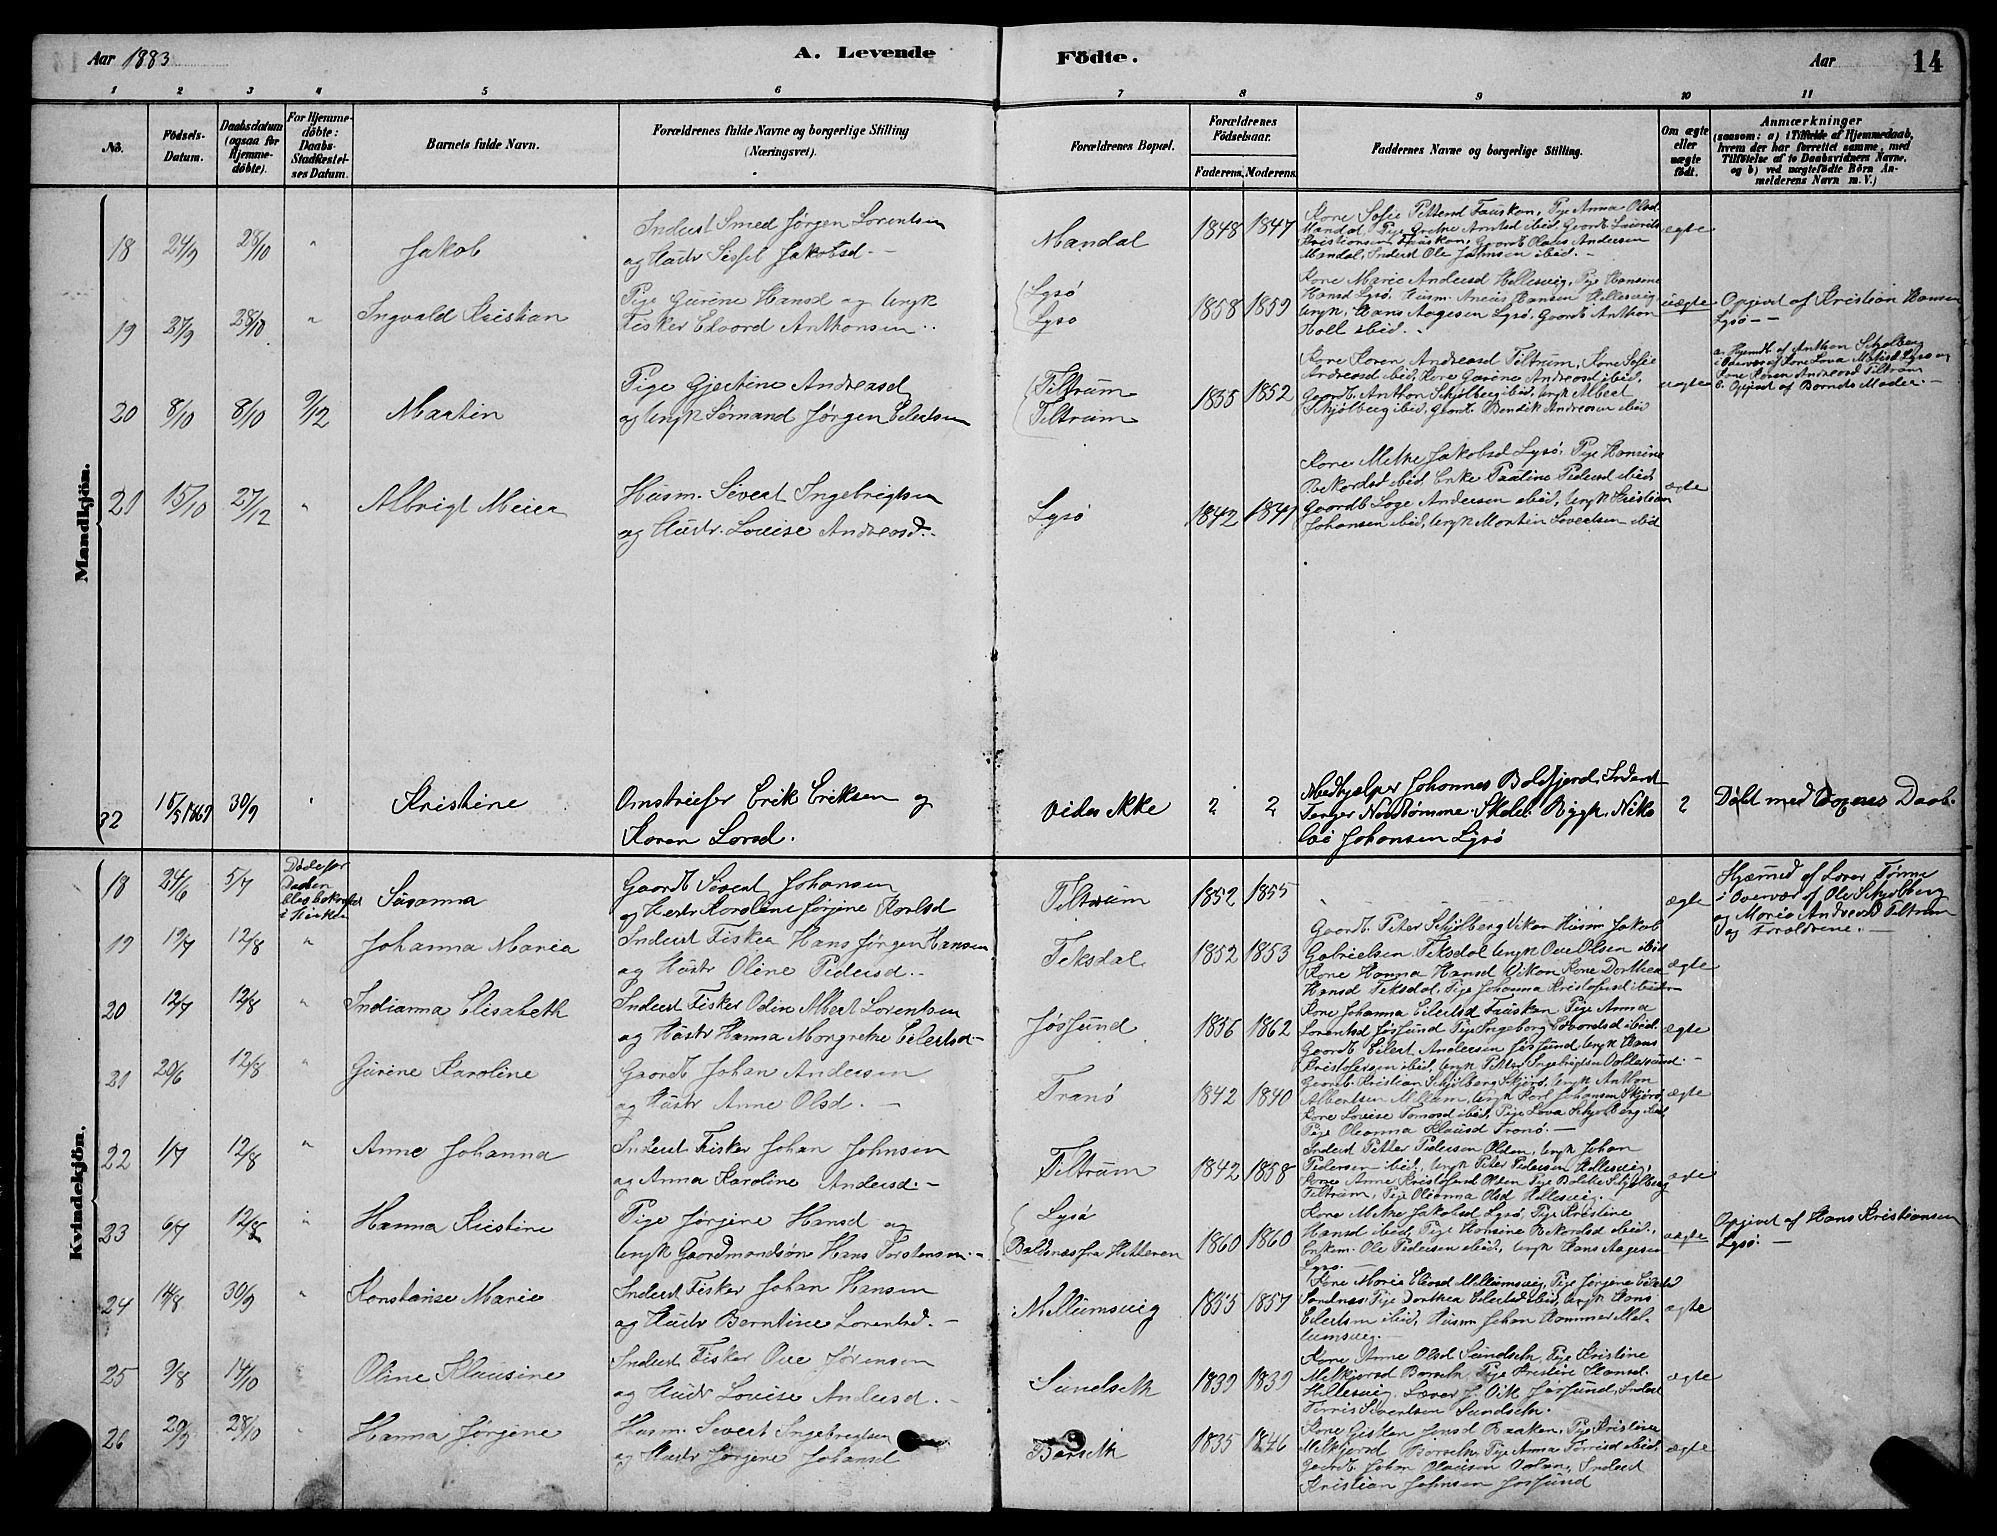 Aar 1883
A. Levende
Födte.
Aar
14
1 2 3 4 5 6 7 8 9 10 11
No.
Födsels-
Datum.
Daabsdatum
(ogsaa for
Hjemme-
döbte).
For Hjemme-
döbte:
Daabs-
Stadfæstel-
ses Datum.
Barnets fulde Navn.
Forældrenes fulde Navne og borgerlige Stilling
(Næringsvei).
Forældrenes Bopæl.
Forældrenes
Födselsaar.
Faderens. Moderens.
Faddernes Navne og borgerlige Stilling.
Om ægte
eller
uægte
födt.
Anmærkninger
(saasom: a) i Tilfælde af Hjemmedaab,
hvem der har forrettet samme, med
Tilföielse af to Daabsvidners Navne,
og b) ved uægtefödte Börn An-
melderens Navn m. V.)
Mandkjön.
18 24/9 28/10 "
Jakob
Inderst Smed Jørgen Lorentsen
og Hustr Sissel Jakobsd.
Mandal
1848 1847
Kone Sofie Pettersd Fauskan, Pige Anna Olsd
Mandal, Pige Grethe Arntsd ibid, Gaardb Laurits
Kristiansen Fauskan, Gaardb Olaus Andersen
Mandal, Inderst Ole Johnsen ibid.
ægte
19 27/9 28/10 "
Ingvald Kristian
Pige Gurine Hansd og Ungk
Fisker Edvard Anthonsen
Lysø
Lysø
1858 1859
Kone Marie Andersd Hellesvig, Pige Hansine
Hansd Lysø, Husm. Hansen Hellesvig
Ungk. Hans Aagesen Lysø, Gaardb Anthon
Holl ibid.
uægte
Opgivet af Kristian Hansen
Lysø
20 8/10 8/10 9/12
Martin
Pige Gjertine Andreasd
og Ungk Sømand Jørgen Eilertsen
Tiltrum
Tiltrum
1855 1852
Kone Karen Andreasd Tiltrum, Kone Sofie
Andreasd ibid, Kone Gurine Andreasd ibid,
Gaardb. Anthon Schjølberg ibid, Ungk Albert
Schjølberg ibid, Gaardb. Bendik Andreasen ibid
uægte
a. Hjemdt. af Anthon Schjølberg
i Overvær af Kone Lova Lysø og
Kone Karen Andreasd Tiltrum
b. Opgivet af Barnets Moder.
21 15/10 27/12 "
Albrigt Meier
Husm. Sivert Ingebrigtsen
og Hustr. Louise Andreasd.
Lysø
1842 1841
Kone Methe Jakobsd Lysø, Pige Hansine
Rekordsd ibid, Enke Pauline Pedersd ibid,
Gaardb Loge Andersen ibid, Ungk Kristian
Johansen ibid, Ungk Martin Sivertsen ibid
ægte
22 15/5 1869 30/9 "
Kristine
Omstreifer Erik Eriksen og
Karen Larsd.
vides Ikke
? ?
Medhjælper Johannes Bolefjord, Inderst
Nordtømme Skole, Ungk. Niko
lai Johansen Lysø
?
Døbt med Voxnes Daab.
Kvindekjön.
18 24/6 5/7
Døde før
Daaben
blev bekræftet
i Kirken
Susanna
Gaardb Sivert Johansen
og Hustr Karoline Jørgine Karlsd
Tiltrum
1852 1855
ægte
Hjemmd af Lærer Tønne
i Overvær af Ole Schjølberg
og Maria Andreasd Tiltrum
og Forældrene.
19 19/7 12/8 "
Johanna Maria
Inderst Fisker Hans Jørgen Hansen
og Hustr Oline Pedersd.
Teksdal
1852 1853
Gaardb. Peter Schjølberg Vikan, Husm Jakob
Gabrielsen Teksdal, Ungk Ove Olsen ibid
Kone Hanna Hansd Vikan, Kone Dorthea
Hansd Teksdal, Pige Johanna Kristofersd ibid
ægte
20 12/7 12/8 "
Indianna Elisabeth
Inderst Fisker Odin Albert Lorentsen
og Hustr Hanna Margrethe Eilertsd.
Jøssund
1856 1862
Kone Johanna Eilertsd Fauskan, Pige Anna
Lorentsd Jøssund, Pige Ingeborg Edvardsd ibid.
Gaardb Eilert Andersen Jøssund, Ungk Hans
Kristofersen ibid, Ungk Petter Ingebrigtsen
ægte
21 20/6 12/8 "
Gurine Karoline
Gaardb Johan Andersen
og Hustr Anne Olsd.
Tranø
1842 1840
Gaardb. Kristian Schjølberg Skjørø, Ungk Anthon
Albertsen Mellem, Ungk Karl Johansen Skjørø,
Kone Lovise Tomasd ibid, Pige Lova Schjølberg ibid
Pige Oleanna Klausd Tranø.
ægte
22 1/7 12/8 "
Anne Johanna
Inderst Fisker Johan Johnsen
og Anna Karoline Andersd.
Tiltrum
1842 1858
Inderst Petter Pedersen Olden, Ungk Johan
Pedersen ibid, Ungk Peter Pedersen Hellesvig,
Kone Anne Kristofersd Olden, Pige Bolette Schjølberg
Tiltrum, Pige Oleanna Olsd Hellesvig.
ægte
23 6/7 12/8 "
Hanna Kristine
Pige Jørgine Hansd og
Ungk Gaardmandsøn Hans Torstensen.
Lysø
Baldsnes fra Hitteren
1860 1860
Kone Methe Jakobsd Lysø, Pige Kristine
Hansd ibid, Pige Hansine Rekordsd ibid.,
Enkm. Ole Pedersen ibid., Ungk Hans Aagesen
Lysø.
uægte
Opgivet af Hans Kristiansen
Lysø.
24 14/8 30/9 "
Konstanse Marie
Inderst Fisker Johan Hansen
og Hustr Berntine Lorentsd.
Mellumsvig
1855 1857
Kone Maria Mellumsvig, Pige Jørgine Eilertsd
Sandnes, Pige Dorthea Eilertsd ibid, Ungk Hans
Eilertsen ibid, Husm Johan Hammer Mel-
lumsvig.
ægte
25 9/8 14/10 "
Oline Klausine
Inderst Fisker Ove Jørensen
og Hustr Lovise Andersd.
Sundseth
1839 1839
Kone Anne Olsd Sundseth, Pige Kristine
Melkjorsd Borseth, Pige Kristine Hansd.
Hellesvig, Lærer J. Vik Jøssund, Inderst
Torris Sivertsen Sundseth.
ægte
26 20/9 28/10 "
Hanna Jørgine
Husm. Sivert Ingebrigtsen
og Hustr Jørgine Johansd
Borseth
1835 1846
Kone Gisken Jensd Braken, Pige Kristine
Melkjorsd Borseth, Pige Anna Torrisd ibid,
Gaardb. Johan Olausen, Inderst
Kristian Johnsen Jøssund
ægte